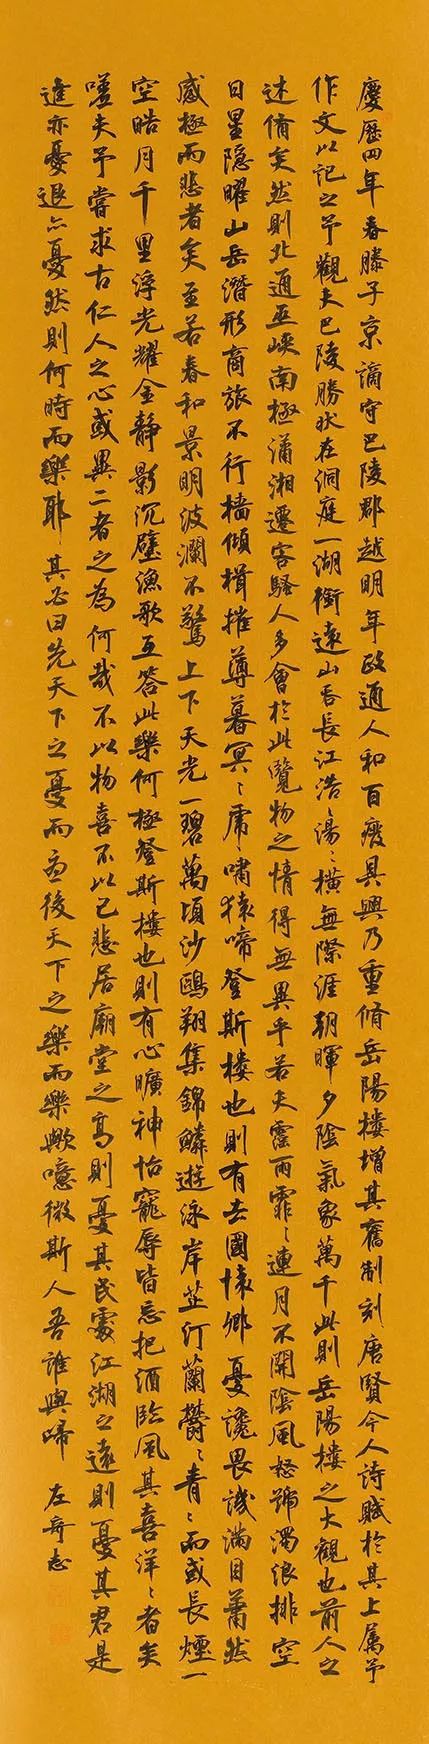 慶曆四年春滕子京謫守巴陵郡越明年政通人和百廢具興乃重脩岳陽樓增其舊制刻唐賢今人詩賦於其上屬予
作文以記之予觀夫巴陵勝狀在洞庭一湖銜遠山吞長江浩〻湯〻橫無際涯朝暉夕陰氣象萬千此則岳陽樓之大觀也前人之
述備矣然則北通巫峽南極瀟湘遷客騷人多會於此覽物之情得無異乎若夫霪雨霏〻連月不開陰風怒號濁浪排空
日星隱曜山岳潛形商旅不行檣傾楫摧薄暮冥〻虎嘯猿啼登斯樓也則有去國懷鄉憂讒畏譏滿目蕭然
感極而悲者矣至若春和景明波瀾不驚上下天光一碧萬頃沙鷗翔集錦鱗遊泳岸芷汀蘭鬱〻青〻而或長煙一
空皓月千里浮光耀金靜影沉璧漁歌互答此樂何極登斯樓也則有心曠神怡寵辱皆忘把酒臨風其喜洋〻者矣
嗟夫予嘗求古仁人之心或異二者之為何哉不以物喜不以己悲居廟堂之高則憂其民處江湖之遠則憂其君是
進亦憂退亦憂然則何時而樂耶其必曰先天下之憂而憂後天下之樂而樂歟噫微斯人吾誰與歸 左奇志